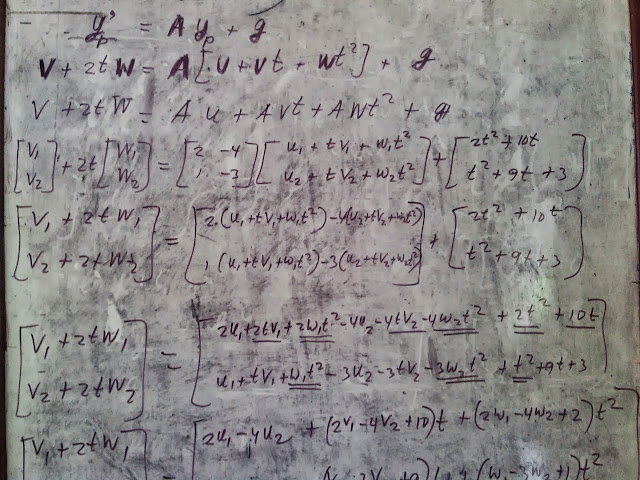 y'p = A yp + g
V + 2tW = A[U + Vt + Wt²] + g
V + 2tW = A u + A Vt + A Wt² + g
[V₁ V₂] + 2t [W₁ W₂] = [2 -4 1 -3] [u₁ + tV₁ + w₁t² u₂ + tV₂ + w₂t²] + [2t² + 10t t² + 9t + 3]
[V₁ + 2tW₁ V₂ + 2tW₂] = [2.(u₁ + tV₁ + w₁t²) - 4(u₂ + tV₂ + w₂t²) 1(u₁ + tV₁ + w₁t²) - 3(u₂ + tV₂ + w₂t²)] + [2t² + 10t t² + 9t + 3]
[V₁ + 2tW₁ V₂ + 2tW₂] = [2u₁ + 2tV₁ + 2w₁t² - 4u₂ - 4tV₂ - 4w₂t² + 2t² + 10t u₁ + tV₁ + w₁t² - 3u₂ - 3tV₂ - 3w₂t² + t² + 9t + 3]
[V₁ + 2tW₁ = [2u₁ - 4u₂ + (2V₁ - 4V₂ + 10)t + (2w₁ - 4w₂ + 2)t²
(w₁ - 3w₂ + 1)t²